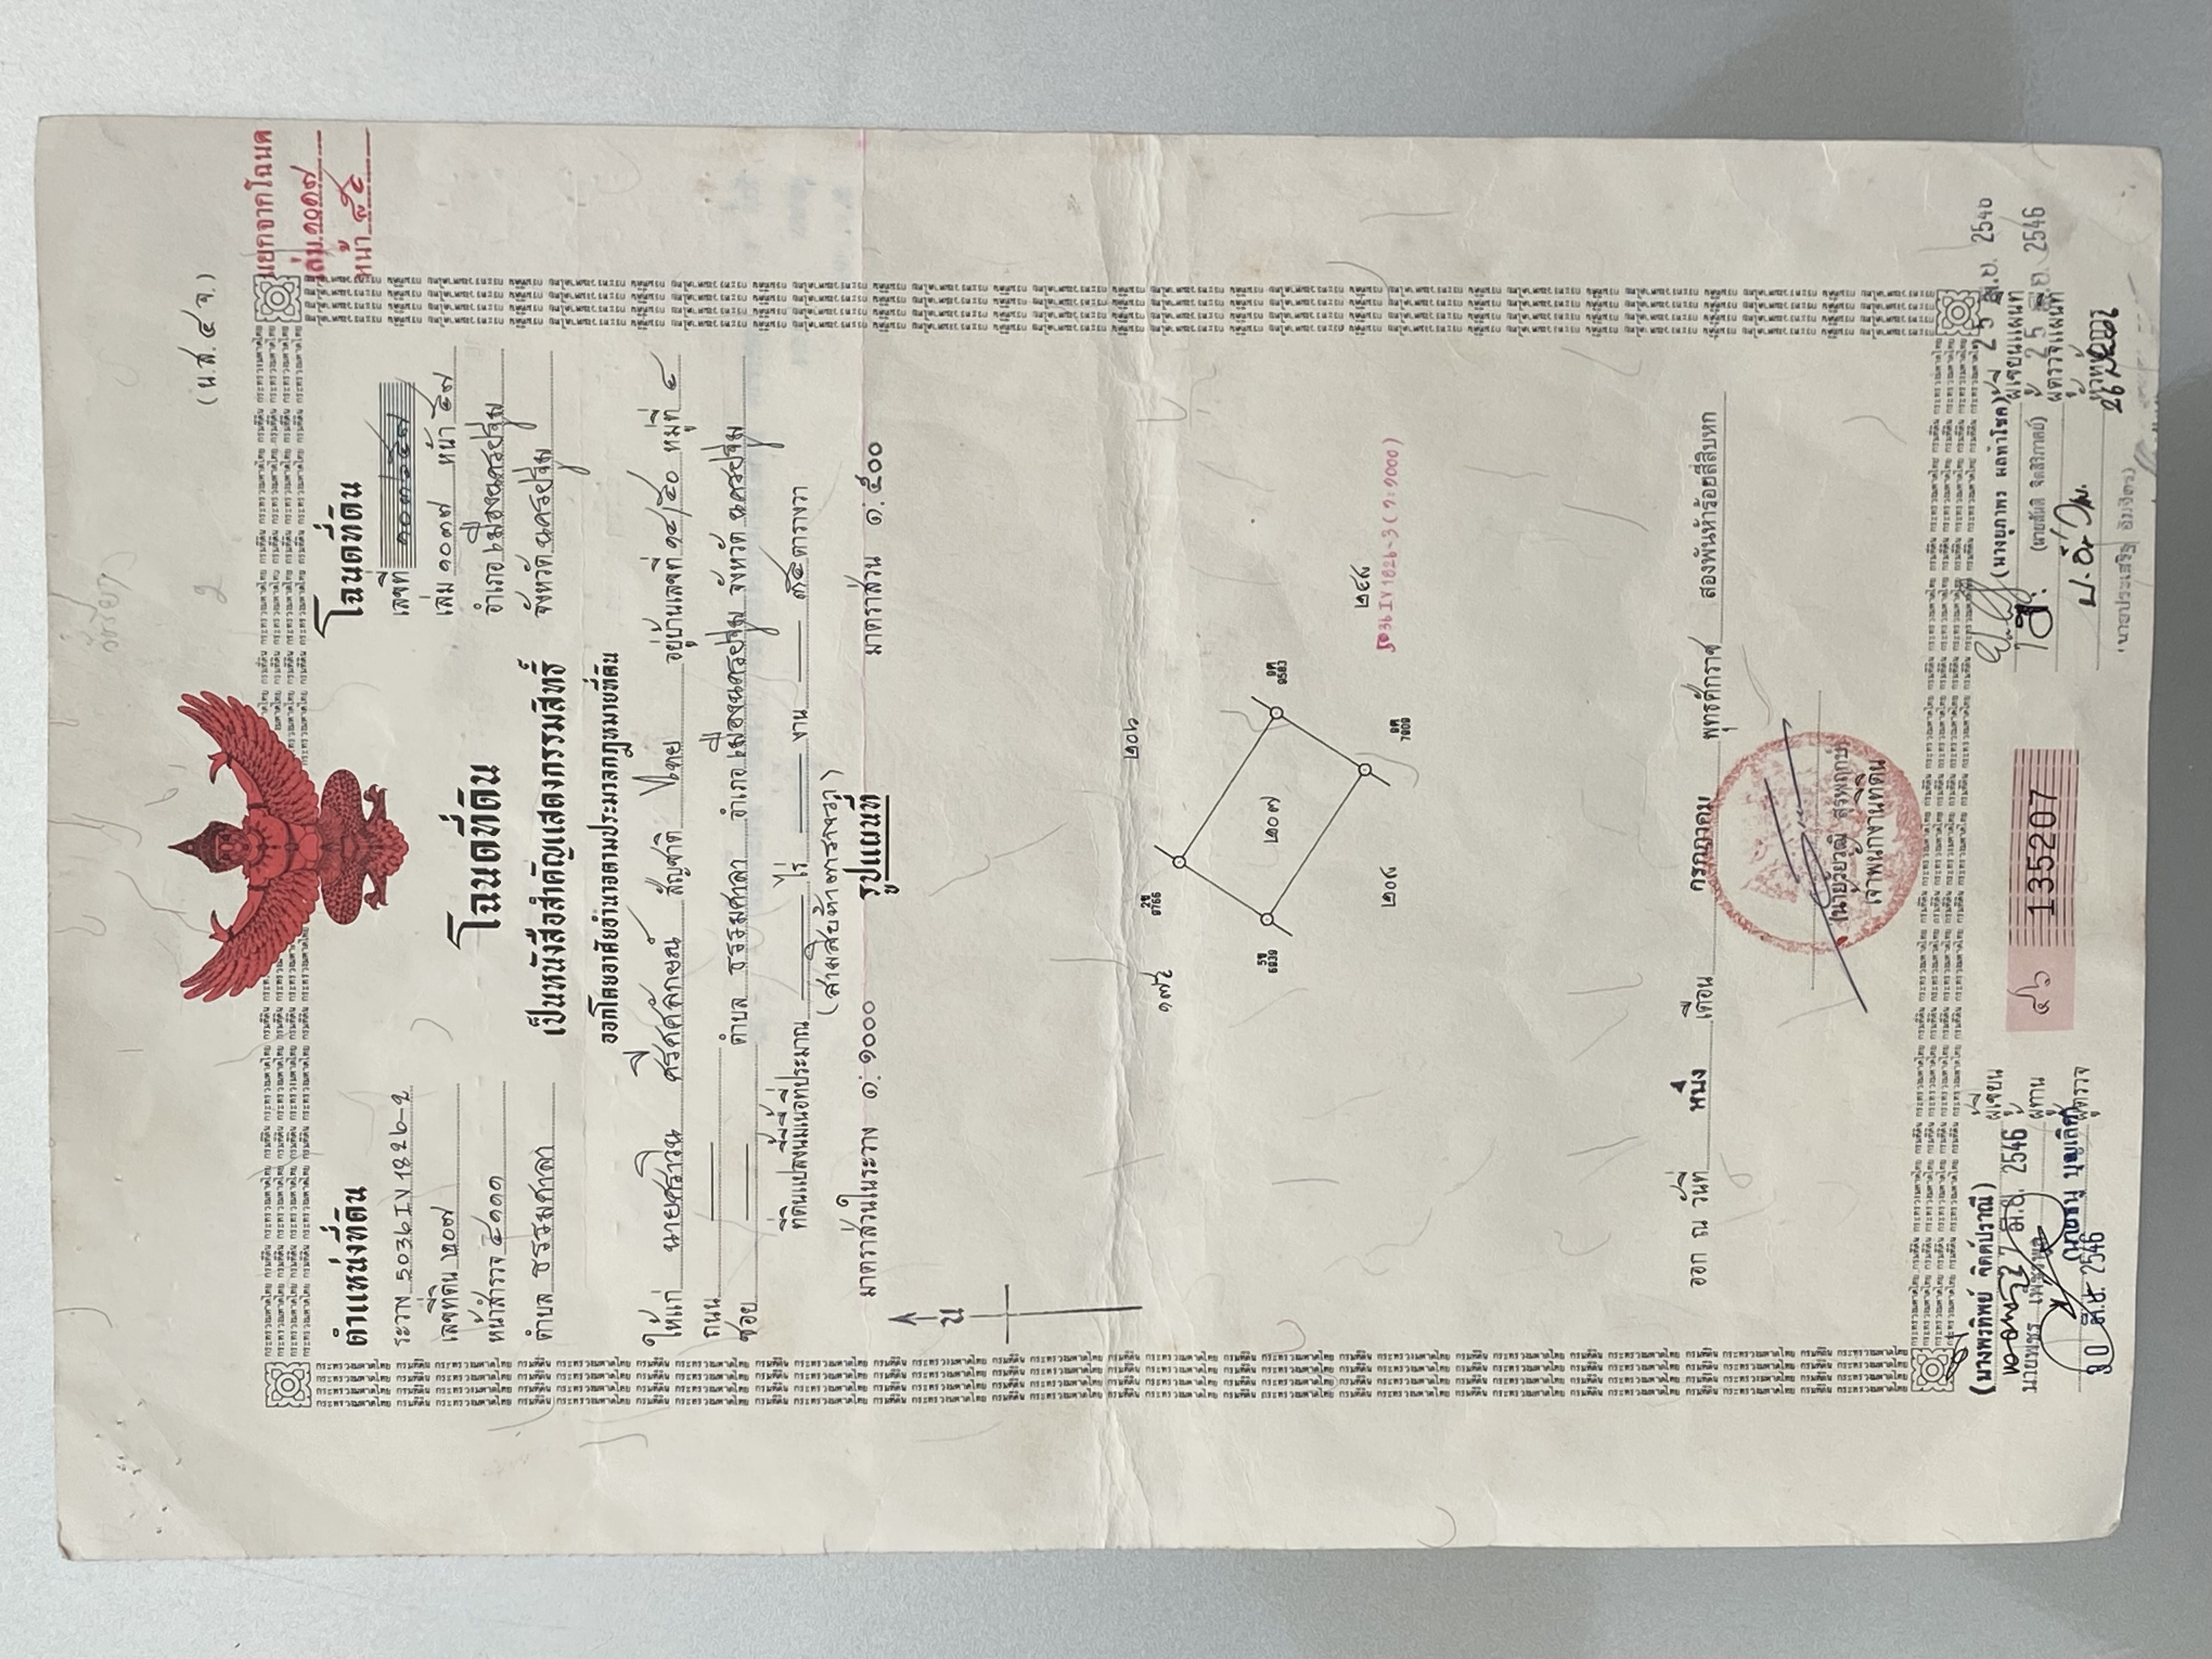 (น.ส. ๔ จ.)
แยกจากโฉนด
เล่ม ๑๐๑๗
หน้า
ตำแหน่งที่ดิน
โฉนดที่ดิน
ระวาง 5036 IV 1826-2
เลขที่ ๑๐๓๖๕๗
เลขที่ดิน ๒๐๗
เล่ม ๑๐๓๗ หน้า ๕๗
หน้าสำรวจ ๕๑๑๑
อำเภอ เมืองนครปฐม
ตำบล ธรรมศาลา
จังหวัด นครปฐม
โฉนดที่ดิน
เป็นหนังสือสำคัญแสดงกรรมสิทธิ์
ออกโดยอาศัยอำนาจตามประมวลกฎหมายที่ดิน
ให้แก่ นายศราวิน สัญชาติ ไทย อยู่บ้านเลขที่ ๑๔/๔๐ หมู่ที่ ๔
ถนน
ซอย ตำบล ธรรมศาลา อำเภอ เมืองนครปฐม จังหวัด นครปฐม
ที่ดินแปลงนี้มีเนื้อที่ประมาณ ไร่ งาน ๓๕ ตารางวา
(สามสิบห้าตารางวา)
รูปแผนที่
มาตราส่วนในระวาง ๑:๑๐๐๐
มาตราส่วน ๑:๕๐๐
น
๒๐๖
๑๗๕
2ข 9766
อศ 9583
๒๐๗
5ข 6939
อศ 7909
๒๔๙
๒๐๘
5036 IV 1826-3 (๑:๑๐๐๐)
ออก ณ วันที่ หนึ่ง เดือน กรกฎาคม พุทธศักราช สองพันห้าร้อยสี่สิบหก
เจ้าพนักงานที่ดิน
(นางพรทิพย์ จิตต์ปราณี) ผู้เขียน
27 มิ.ย. 2546
ผู้ทาน
ผู้ตรวจ
30 มิ.ย. 2546
๔๖ 135207
(นางยุภาพร ผลทำโชค) ผู้เขียนแผนที่
25 มิ.ย. 2546
(นายสันติ จิตสิริภาคย์) ผู้ตรวจแผนที่
25 มิ.ย. 2546